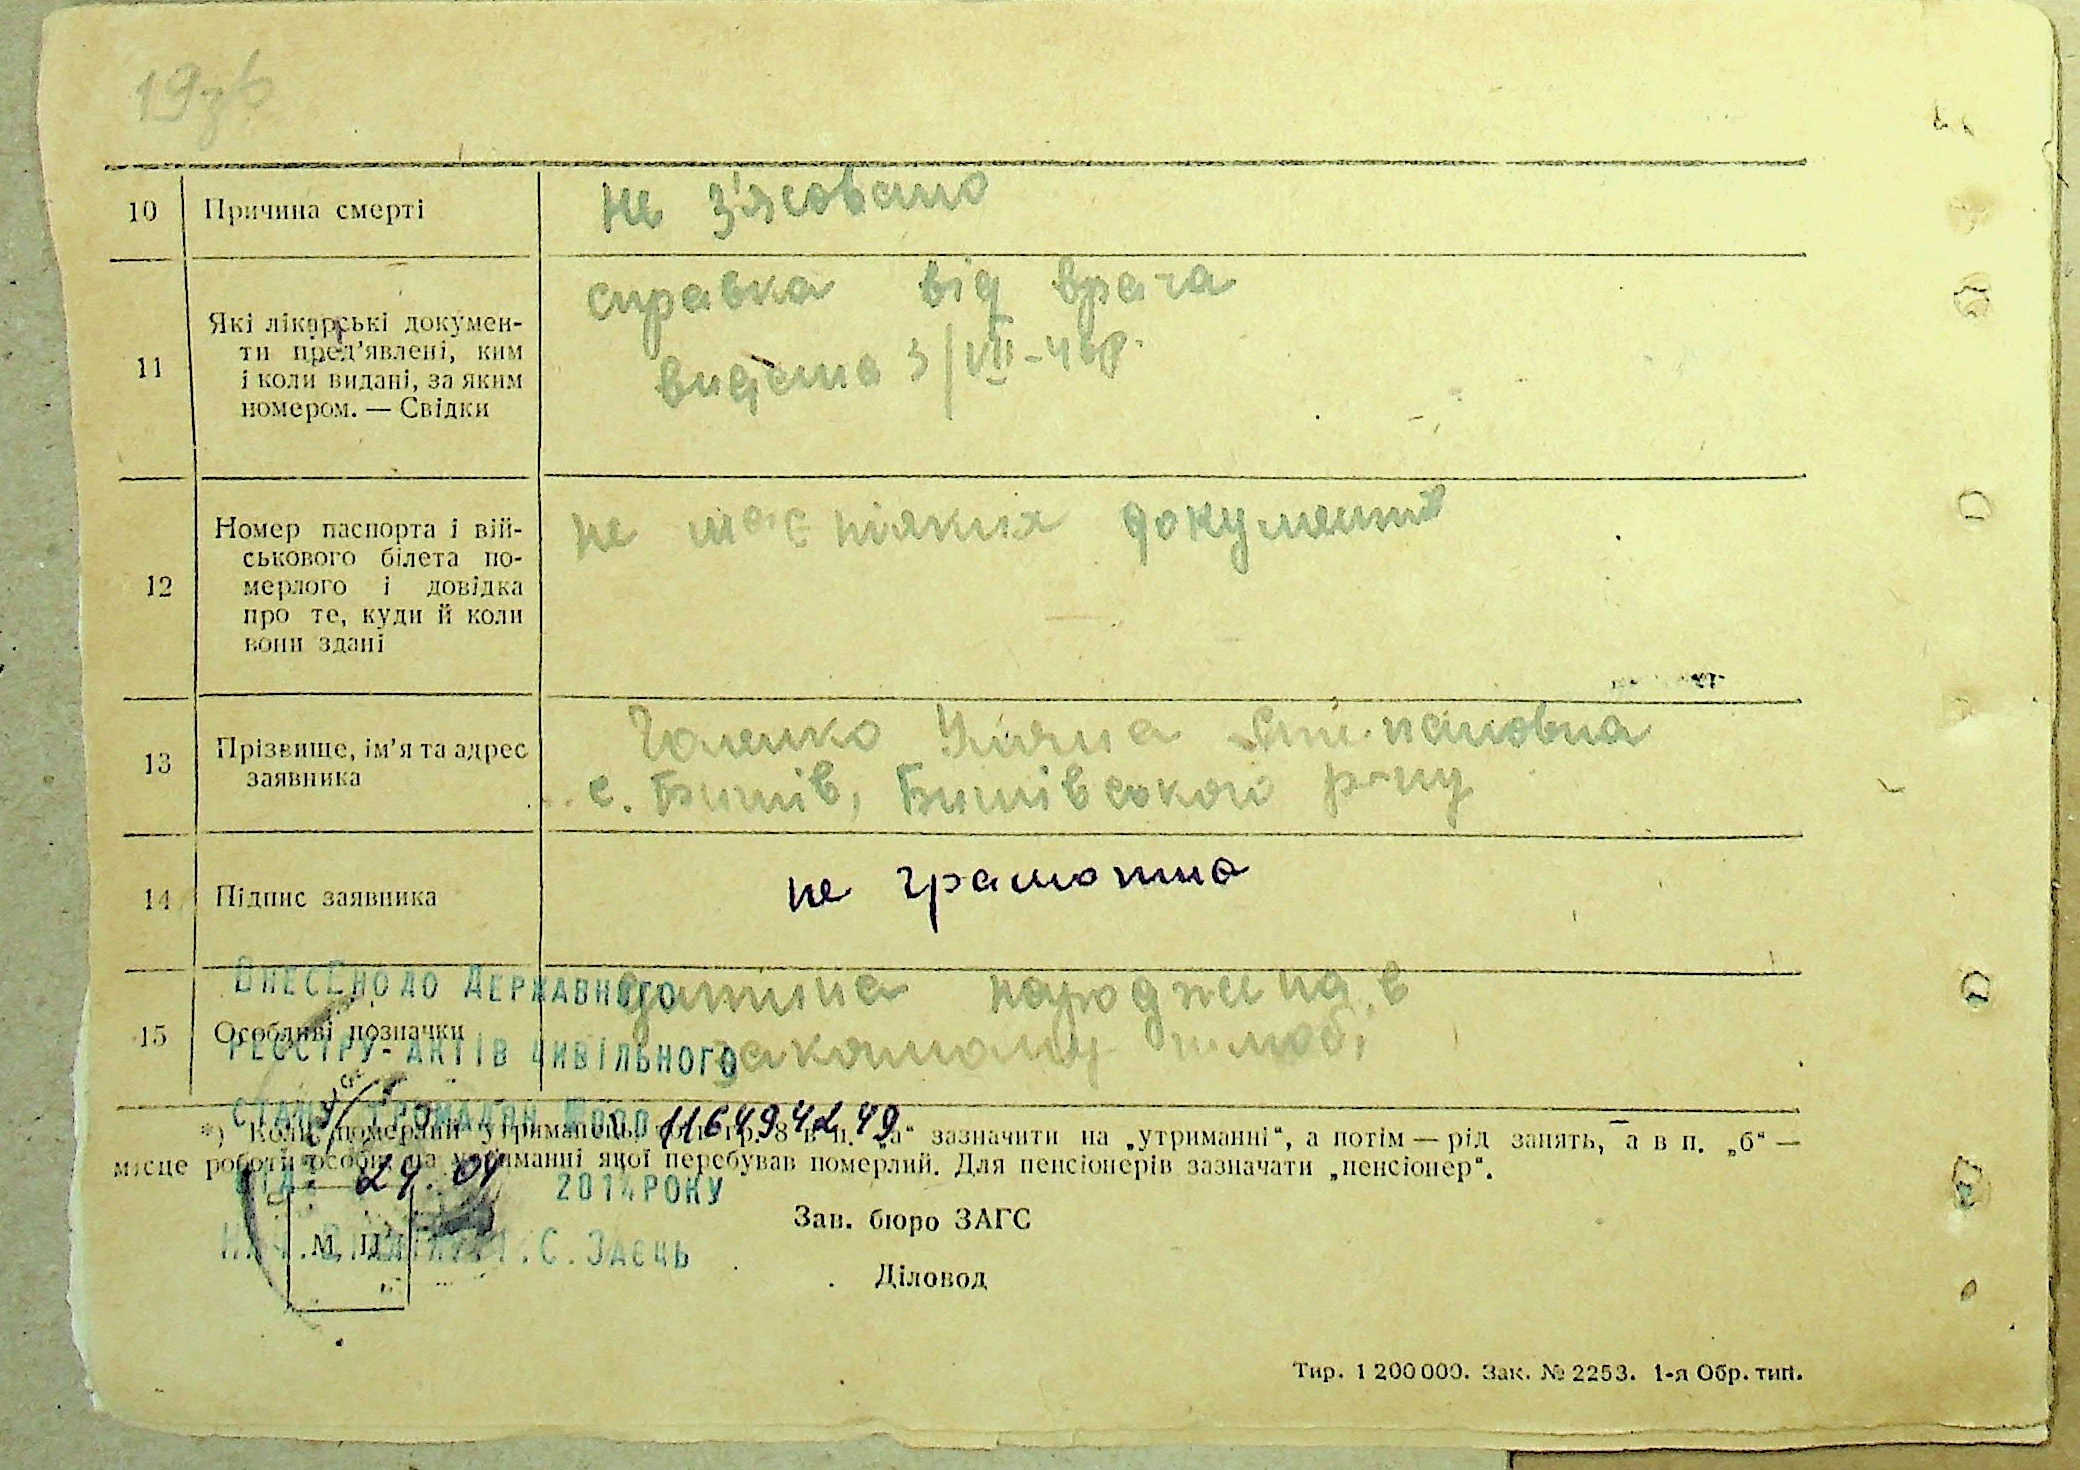 19зв
10 Причина смерті не з'ясовано
11 Які лікарські докумен-
ти пред'явлені, ким
і коли видані, за яким
номером. — Свідки
справка від врача
видана 3/VII-4 р.
12 Номер паспорта і вій-
ськового білета по-
мерлого і довідка
про те, куди й коли
вони здані
не має ніяких документів
13 Прізвище, ім'я та адрес
заявника
Уляна
с. Бишів, Бишівського р-ну
14 Підпис заявника не грамотна
15 Особливі позначки
дитина народжена в
законному шлюбі
Внесено до Державного
реєстру актів цивільного
стану громадян 116494249
29. 04 2014 року
С. Заєць
*) Коли померлий утриманець, то в гр. 8 в п. „а“ зазначити на „утриманні“, а потім — рід занять, а в п. „б“ —
місце роботи особи, на утриманні якої перебував померлий. Для пенсіонерів зазначати „пенсіонер“.
М. П.
Зав. бюро ЗАГС
Діловод
Тир. 1 200 000. Зак. № 2253. 1-я Обр. тип.